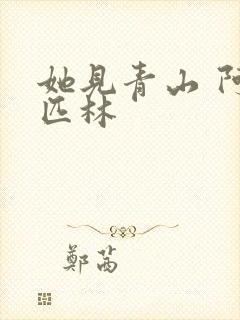 她见青山 阿
匹林
鄭茜